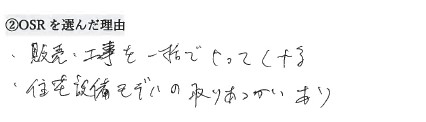 ②OSRを選んだ理由
・販売・工事を一括でやってくれる
・住宅設備モデルの取りあつかいあり